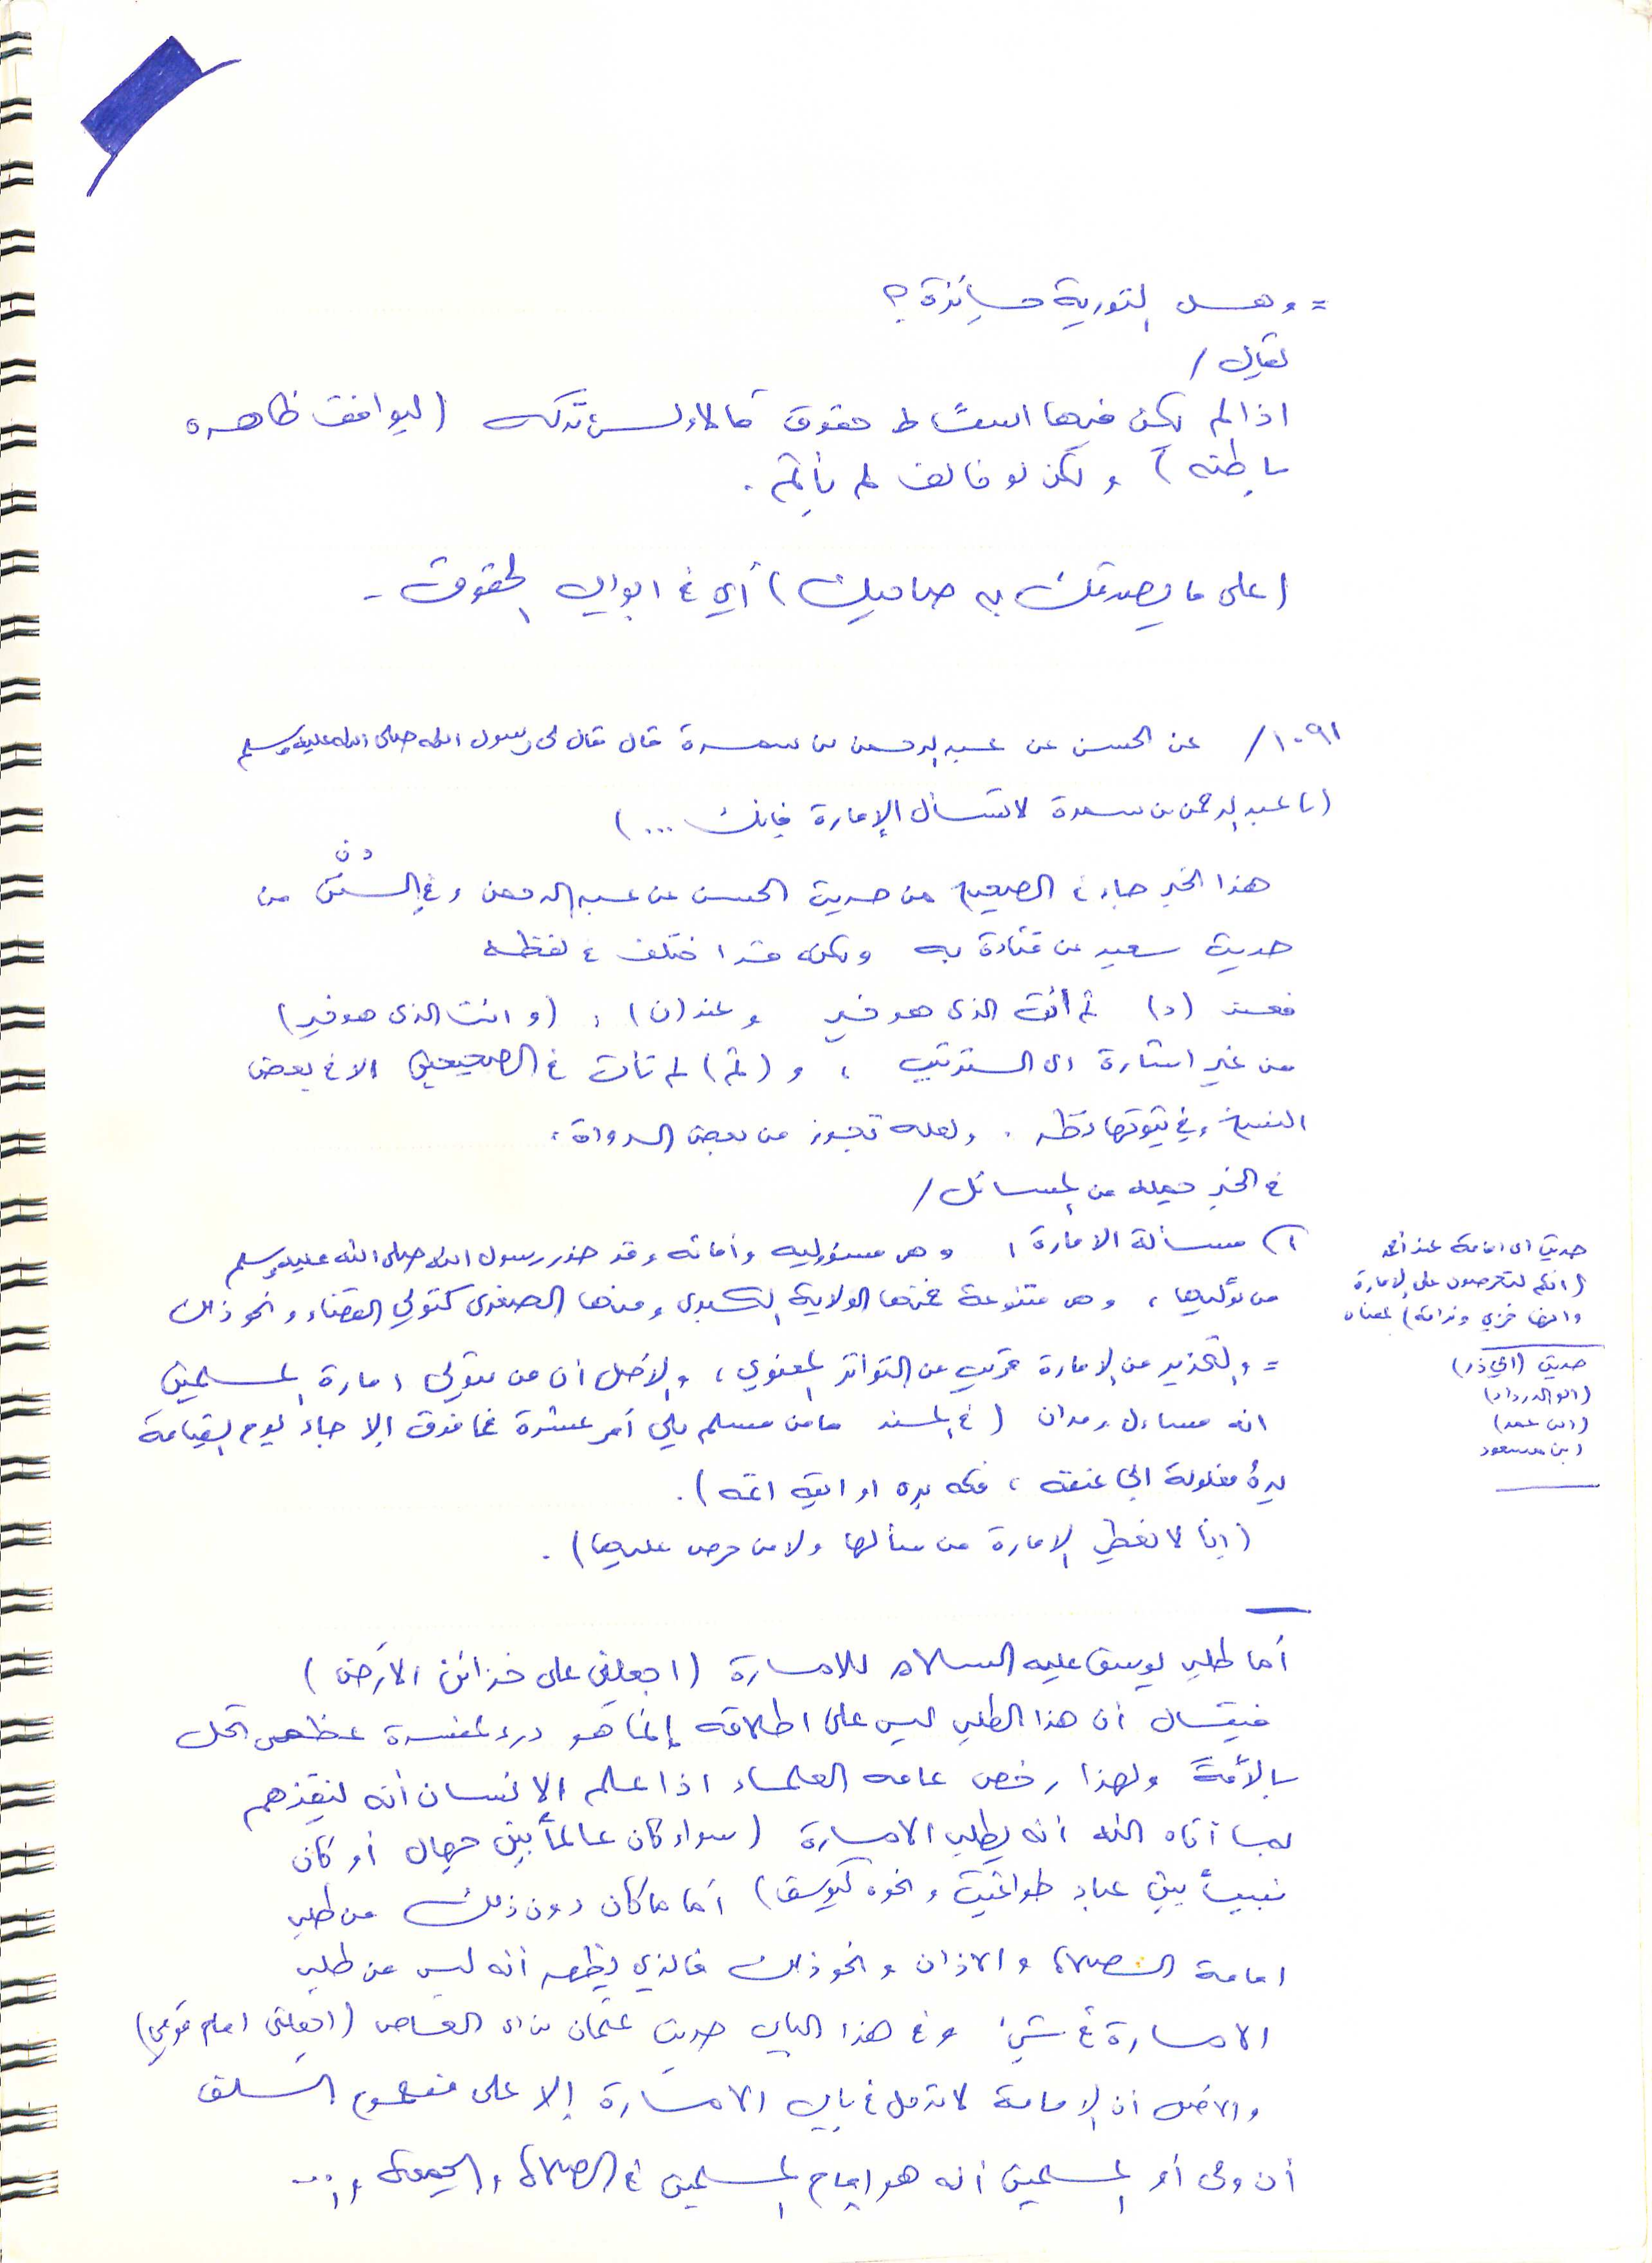 = وهل التورية جائزة ؟
يقال /
اذا لم يكن فيها اسقاط حقوق فالاولى تركه (ليوافق ظاهره
باطنه) ولكن لو خالف لم يأثم .
(على ما يصدقك به صاحبك) أي في ابواب الحقوق -
١٠٩١ / عن الحسن عن عبد الرحمن بن سمرة قال قال لي رسول الله صلى الله عليه وسلم
(يا عبد الرحمن بن سمرة لا تسأل الإمارة فإنك ...)
د ن
هذا الخبر جاء في الصحيحين من حديث الحسن عن عبد الرحمن وفي السنن من
حديث سعيد عن قتادة به ولكنه قد اختلف في لفظه
فعند (د) ثم أئت الذي هو خير وعند (ن) : (وائت الذي هو خير)
من غير اشارة الى الترتيب ، و (ثم) لم تأت في الصحيحين الا في بعض
النسخ وفي ثبوتها نظر . ولعله تجوز من بعض الرواة .
في الخبر جملة من المسائل /
١) مسألة الامارة : وهي مسؤولية وأمانة وقد حذر رسول الله صلى الله عليه وسلم
من توليها ، وهي متنوعة فمنها الولاية الكبرى ومنها الصغرى كتولي القضاء ونحو ذلك
= والتحذير من الإمارة قريب من التواتر المعنوي ، والأصل أن من يتولى امارة المسلمين
انه مساءل ومدان (في المسند ما من مسلم يلي أمر عشرة فما فوق إلا جاء يوم القيامة
يده مغلولة الى عنقه ، فكه بره او اوبقه اثمه) .
(إنا لا نعطي الإمارة من سألها ولا من حرص عليها) .
حديث ابي امامة عند أحمد
(انكم لتحرصون على الإمارة
وانها خزي وندامة) بمعناه
حديث (ابي ذر)
(ابو الدرداء)
(ابن عمر)
ابن مسعود
أما طلب يوسف عليه السلام للامارة (اجعلني على خزائن الأرض)
فيقال أن هذا الطلب ليس على اطلاقه إنما هو درء لمفسدة عظمى تحل
بالأمة ولهذا رخص عامة العلماء اذا علم الانسان أنه لينقذهم
بما آتاه الله أنه يطلب الامارة (سواء كان عالماً بين جهال أو كان
نبياً بين عباد طواغيت ونحوه كيوسف) أما ما كان دون ذلك من طلب
امامة الصلاة والاذان ونحو ذلك فالذي يظهر أنه ليس من طلب
الامارة في شيء وفي هذا الباب حديث عثمان بن ابي العاص (اجعلني امام قومي)
والأصل أن الإمامة لا تدخل في باب الامارة إلا على مفهوم السلف
أن ولي أمر المسلمين أنه هو إمام المسلمين في الصلاة والجمعة و...